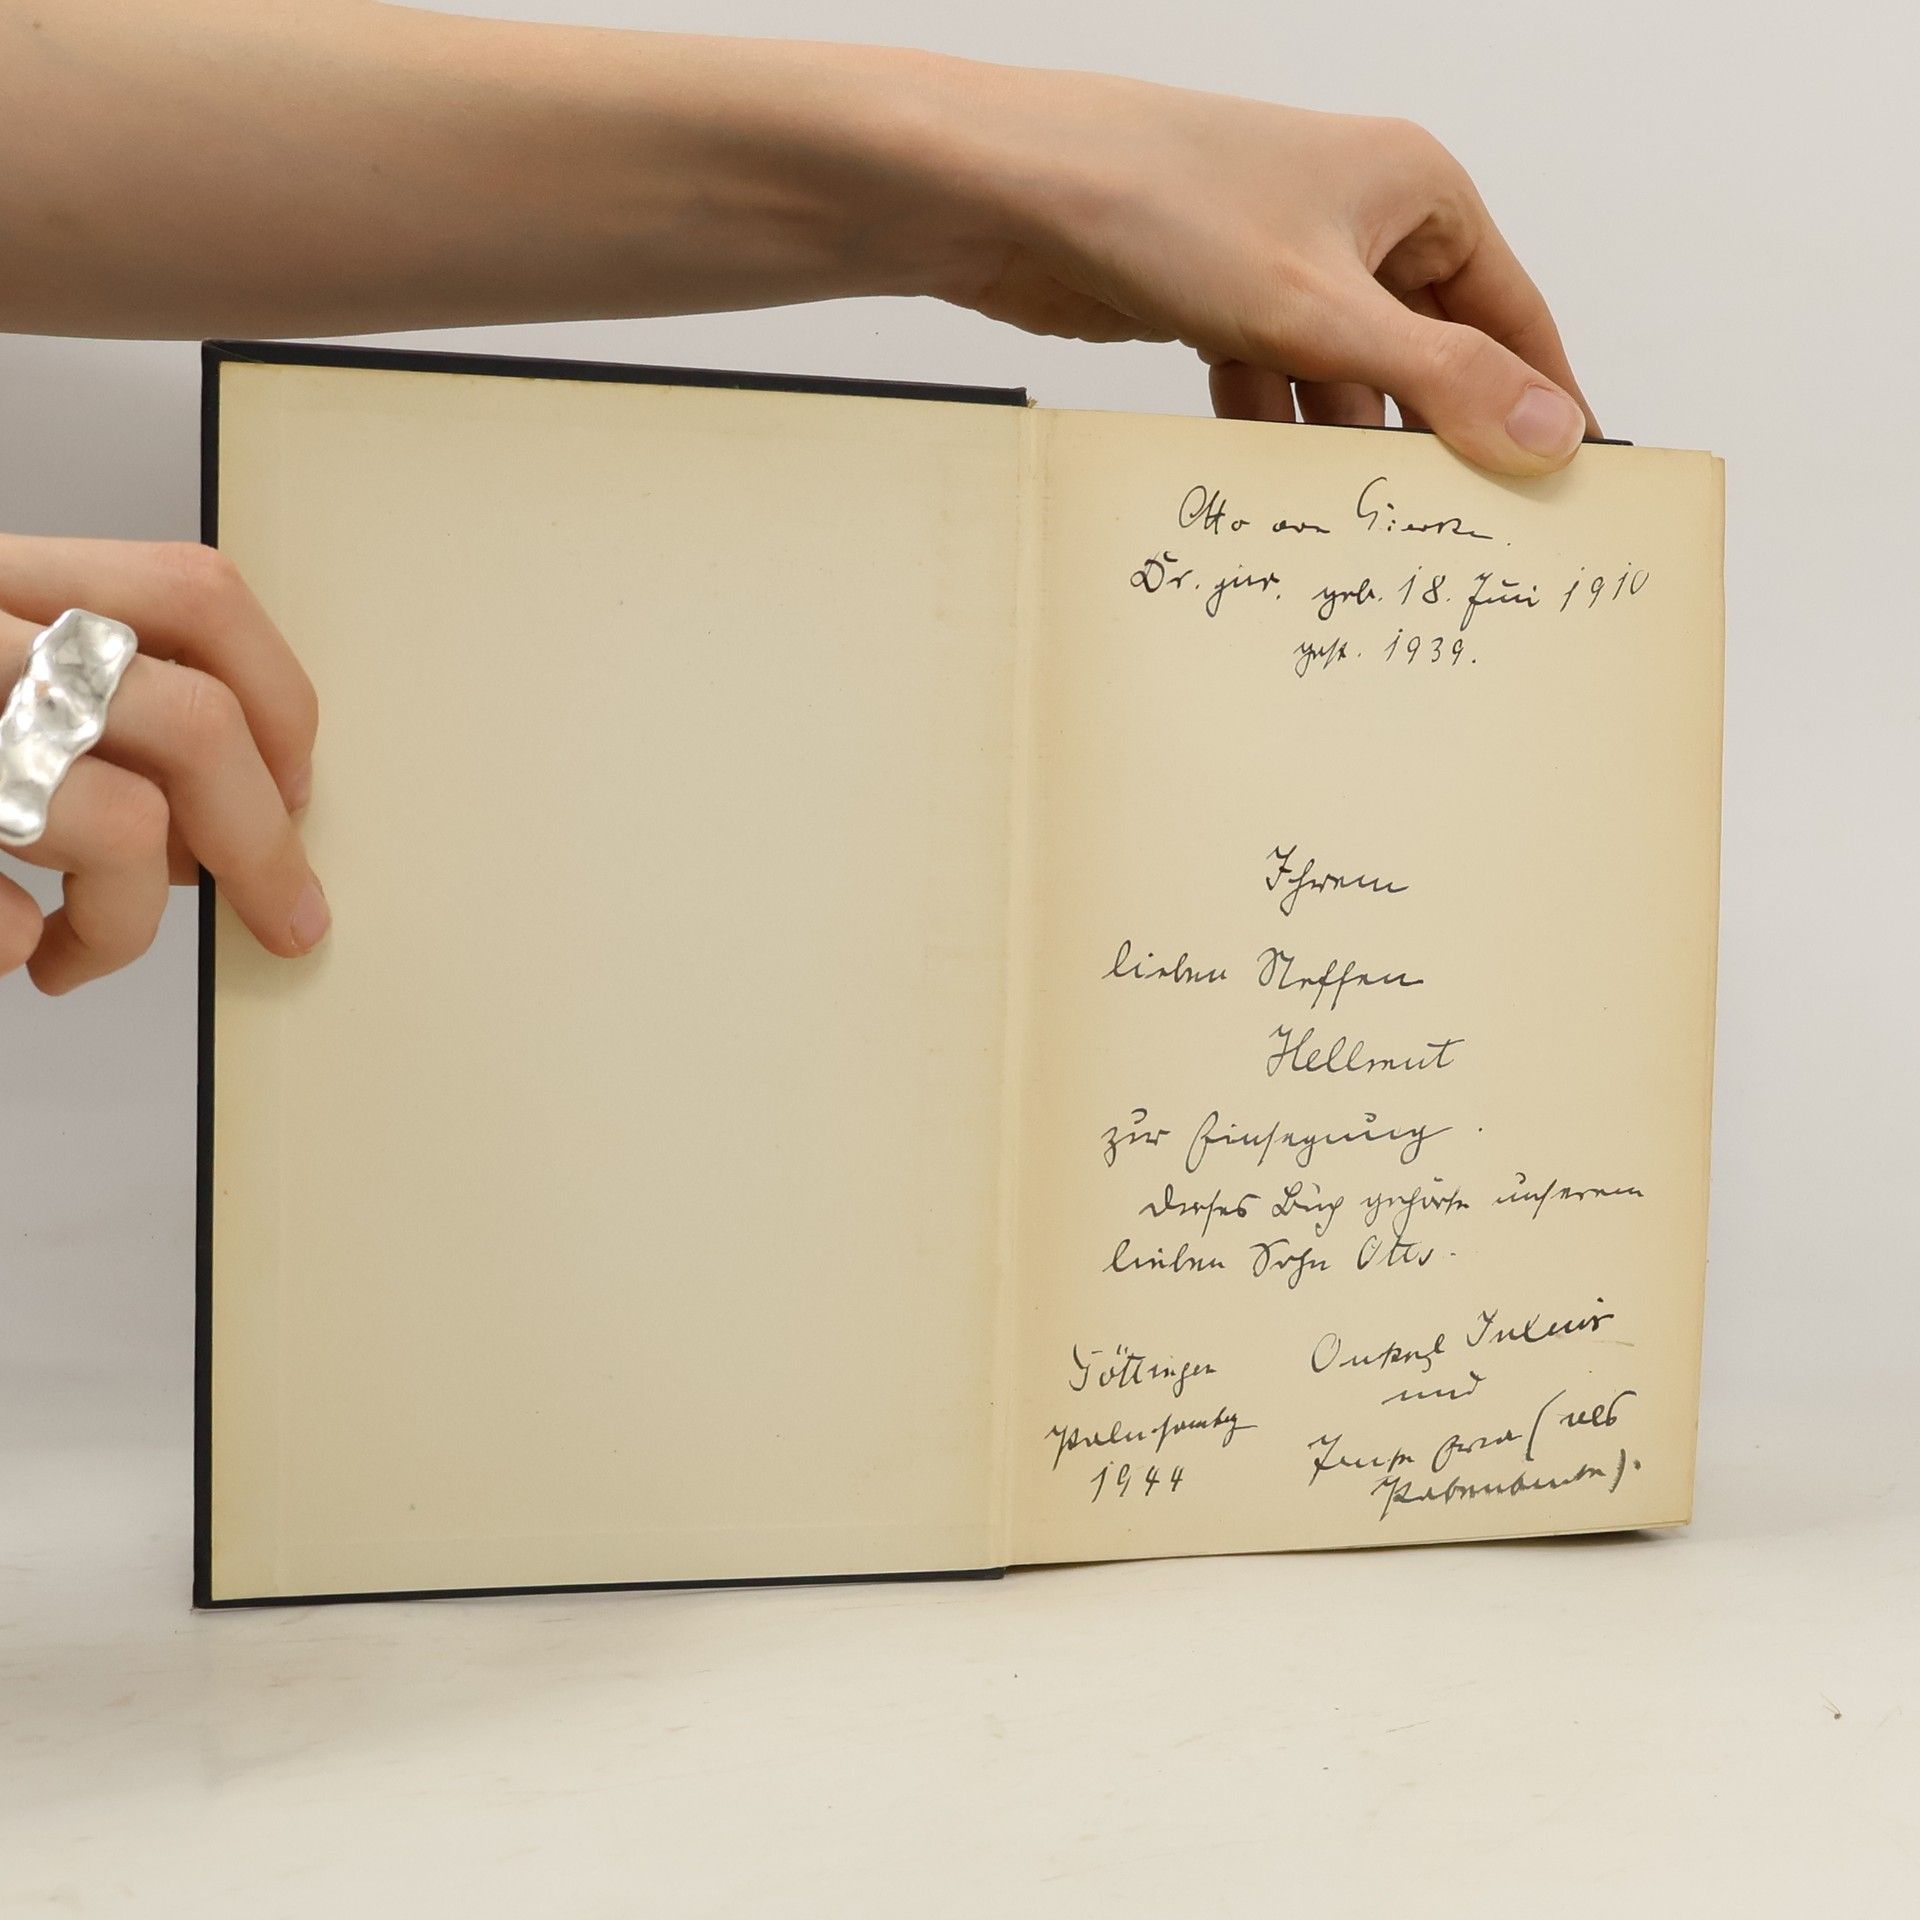 Otto von Gierke.
Dr. jur. geb. 18. Juni 1910
gest. 1939.
Ihrem
lieben Neffen
Hellmut
zur Einsegnung.
Dieses Buch gehörte unserem
lieben Sohn Otto.
Göttingen
Palmsonntag
1944
Onkel Julius
und
Tante (als
Patentante).